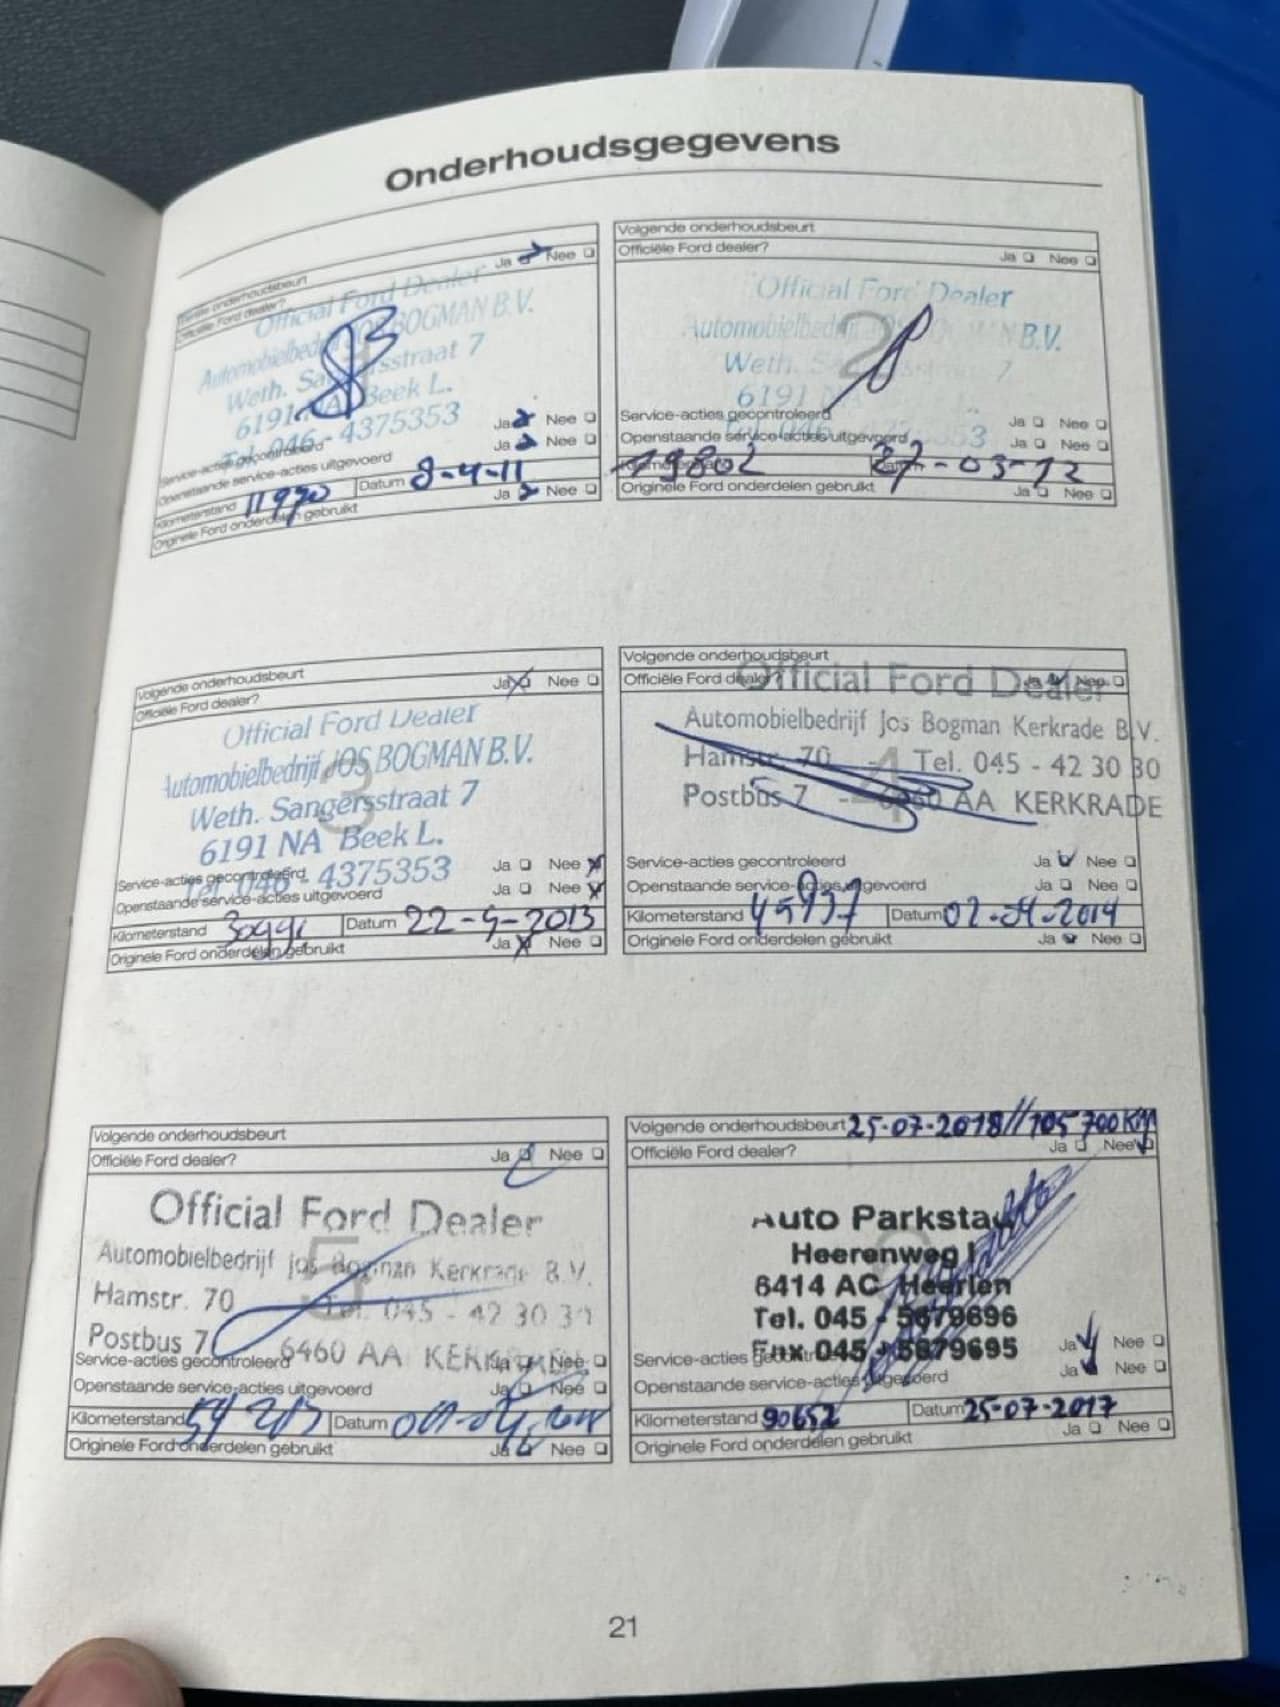 Onderhoudsgegevens
Eerste onderhoudsbeurt
Officiële Ford dealer? Ja Nee
Official Ford Dealer
Automobielbedrijf JOS BOGMAN B.V.
1
Weth. Sangersstraat 7
6191 NA Beek L.
Tel. 046 - 4375353
Service-acties gecontroleerd Ja Nee
Openstaande service-acties uitgevoerd Ja Nee
Kilometerstand 11970 Datum 8-4-11
Originele Ford onderdelen gebruikt Ja Nee
Volgende onderhoudsbeurt
Officiële Ford dealer? Ja Nee
Official Ford Dealer
Automobielbedrijf B.V.
2
Weth. 7
6191 NA
Service-acties gecontroleerd Ja Nee
Openstaande service-acties uitgevoerd Ja Nee
Kilometerstand 19802 Datum 27-03-12
Originele Ford onderdelen gebruikt Ja Nee
Volgende onderhoudsbeurt
Officiële Ford dealer? Ja Nee
Official Ford Dealer
Automobielbedrijf JOS BOGMAN B.V.
3
Weth. Sangersstraat 7
6191 NA Beek L.
Tel. 046 - 4375353
Service-acties gecontroleerd Ja Nee
Openstaande service-acties uitgevoerd Ja Nee
Kilometerstand Datum 22-4-2013
Originele Ford onderdelen gebruikt Ja Nee
Volgende onderhoudsbeurt
Officiële Ford dealer? Ja Nee
Official Ford Dealer
Automobielbedrijf Jos Bogman Kerkrade B.V.
Hamstr. 70 - Tel. 045 - 42 30 30
4
Postbus 7 - 6460 AA KERKRADE
Service-acties gecontroleerd Ja Nee
Openstaande service-acties uitgevoerd Ja Nee
Kilometerstand 45937 Datum 02-04-2014
Originele Ford onderdelen gebruikt Ja Nee
Volgende onderhoudsbeurt
Officiële Ford dealer? Ja Nee
Official Ford Dealer
Automobielbedrijf Jos Bogman Kerkrade B.V.
5
Hamstr. 70 Tel. 045 - 42 30 30
Postbus 7 6460 AA KERKRADE
Service-acties gecontroleerd Ja Nee
Openstaande service-acties uitgevoerd Ja Nee
Kilometerstand Datum
Originele Ford onderdelen gebruikt Ja Nee
Volgende onderhoudsbeurt 25-07-2018 // 105700 KM
Officiële Ford dealer? Ja Nee
Auto Parkstad
Heerenweg
6414 AC Heerlen
Tel. 045 - 5679696
Fax 045 - 5679695
Service-acties gecontroleerd Ja Nee
Openstaande service-acties uitgevoerd Ja Nee
Kilometerstand 90652 Datum 25-07-2017
Originele Ford onderdelen gebruikt Ja Nee
21